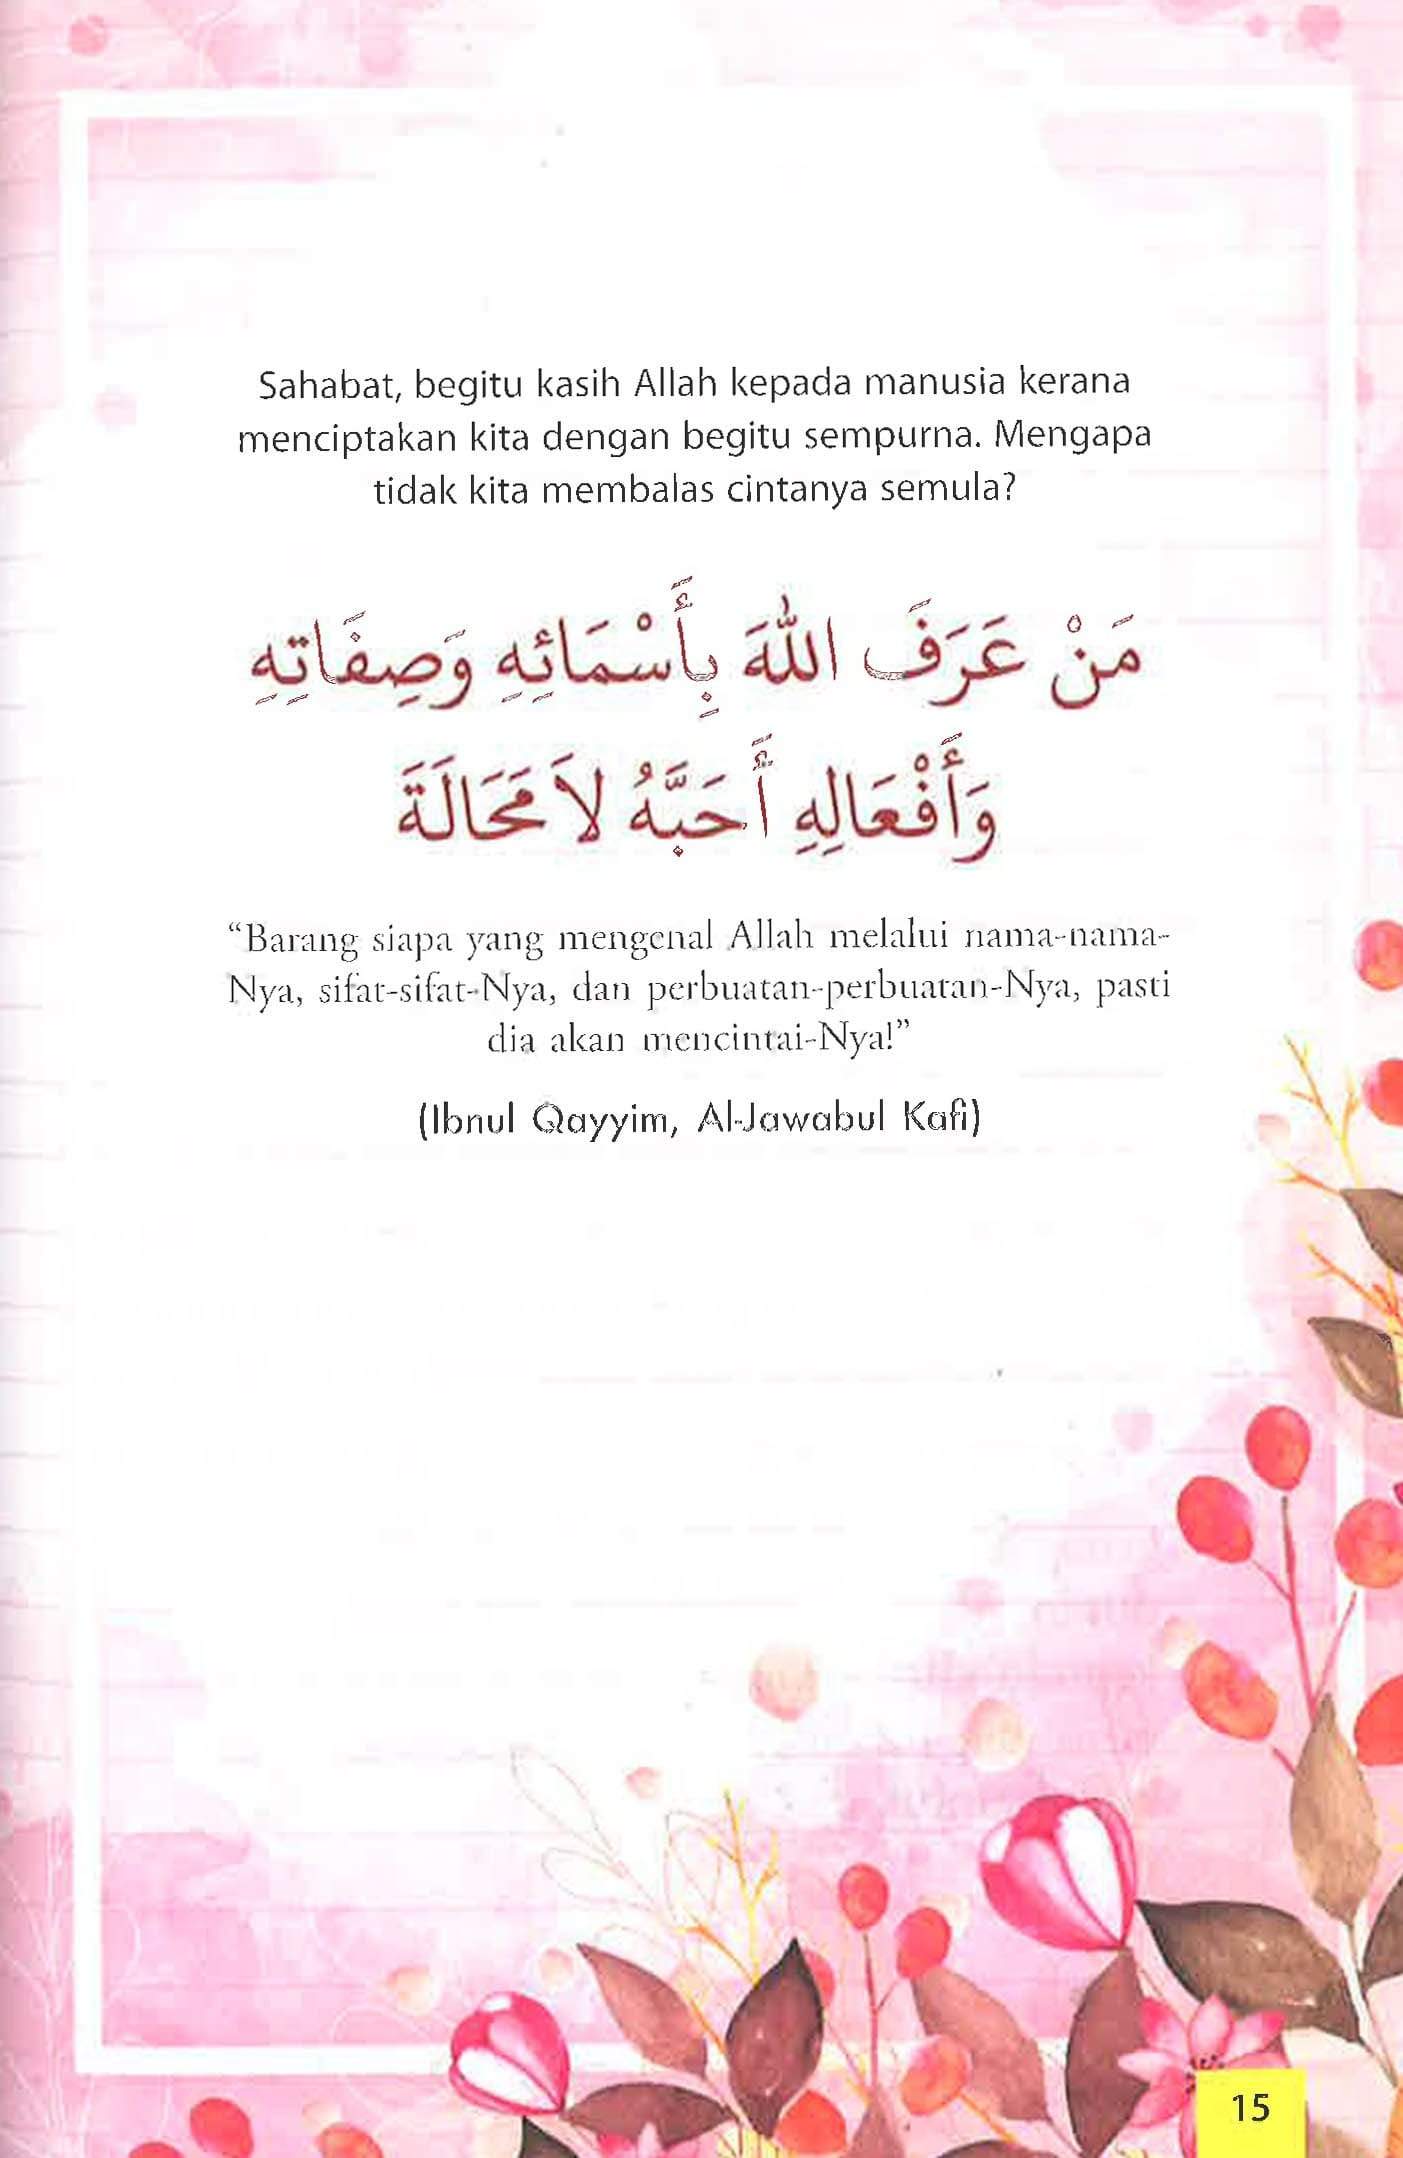 Sahabat, begitu kasih Allah kepada manusia kerana
menciptakan kita dengan begitu sempurna. Mengapa
tidak kita membalas cintanya semula?
مَنْ عَرَفَ اللهَ بِأَسْمَائِهِ وَصِفَاتِهِ
وَأَفْعَالِهِ أَحَبَّهُ لاَ مَحَالَةَ
“Barang siapa yang mengenal Allah melalui nama-nama-
Nya, sifat-sifat-Nya, dan perbuatan-perbuatan-Nya, pasti
dia akan mencintai-Nya!”
(Ibnul Qayyim, Al-Jawabul Kafi)
15